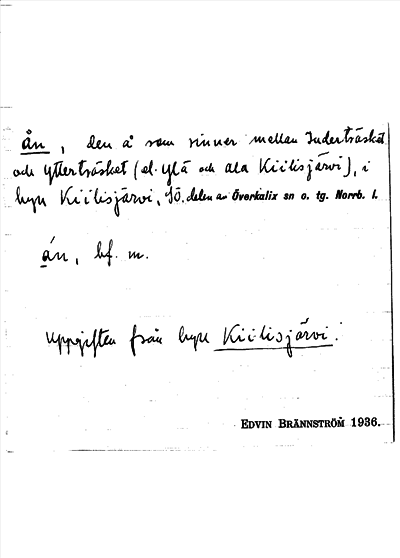 ån, den å som rinner mellan Inderträsket
och Ytterträsket (el. Ylä och ala Kiilisjärvi), i
byn Kiilisjärvi, sö. delen av Överkalix sn o. tg. Norrb. l.
án, bf. m.
Uppgiften från byn Kiilisjärvi.
EDVIN BRÄNNSTRÖM 1936.